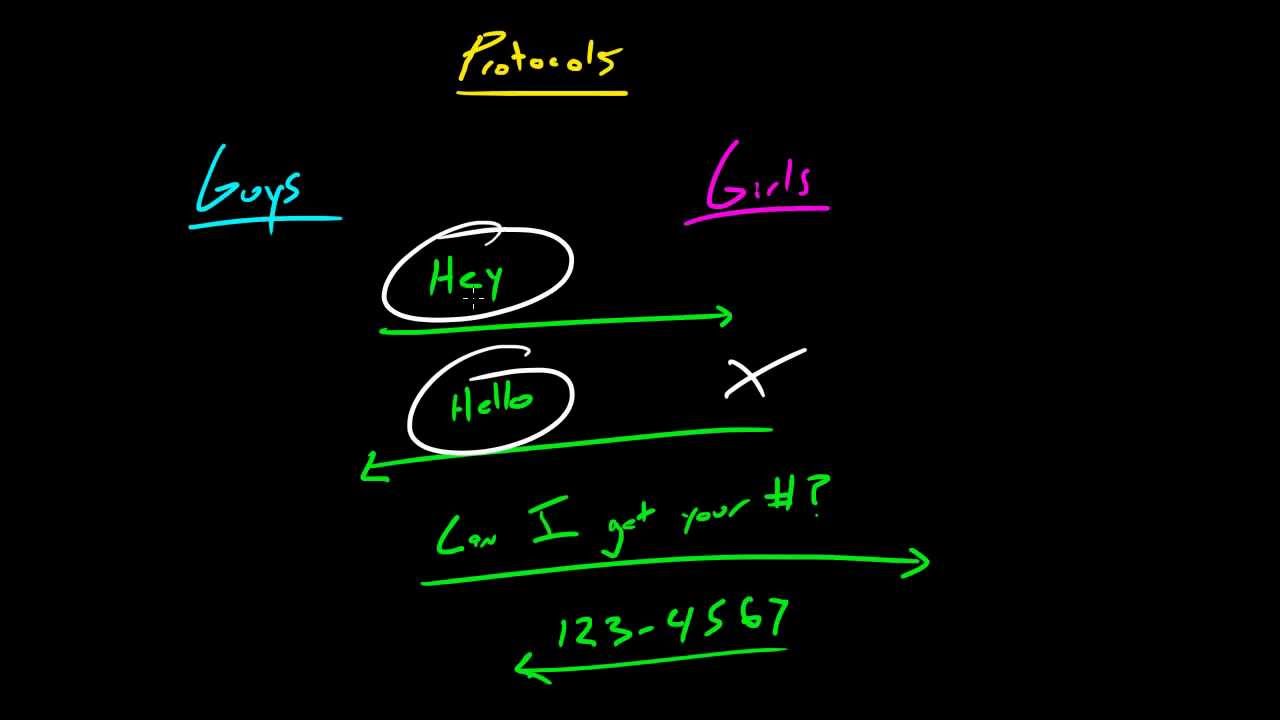 Protocols
Guys Girls
Hey
Hello
Can I get your #?
123-4567